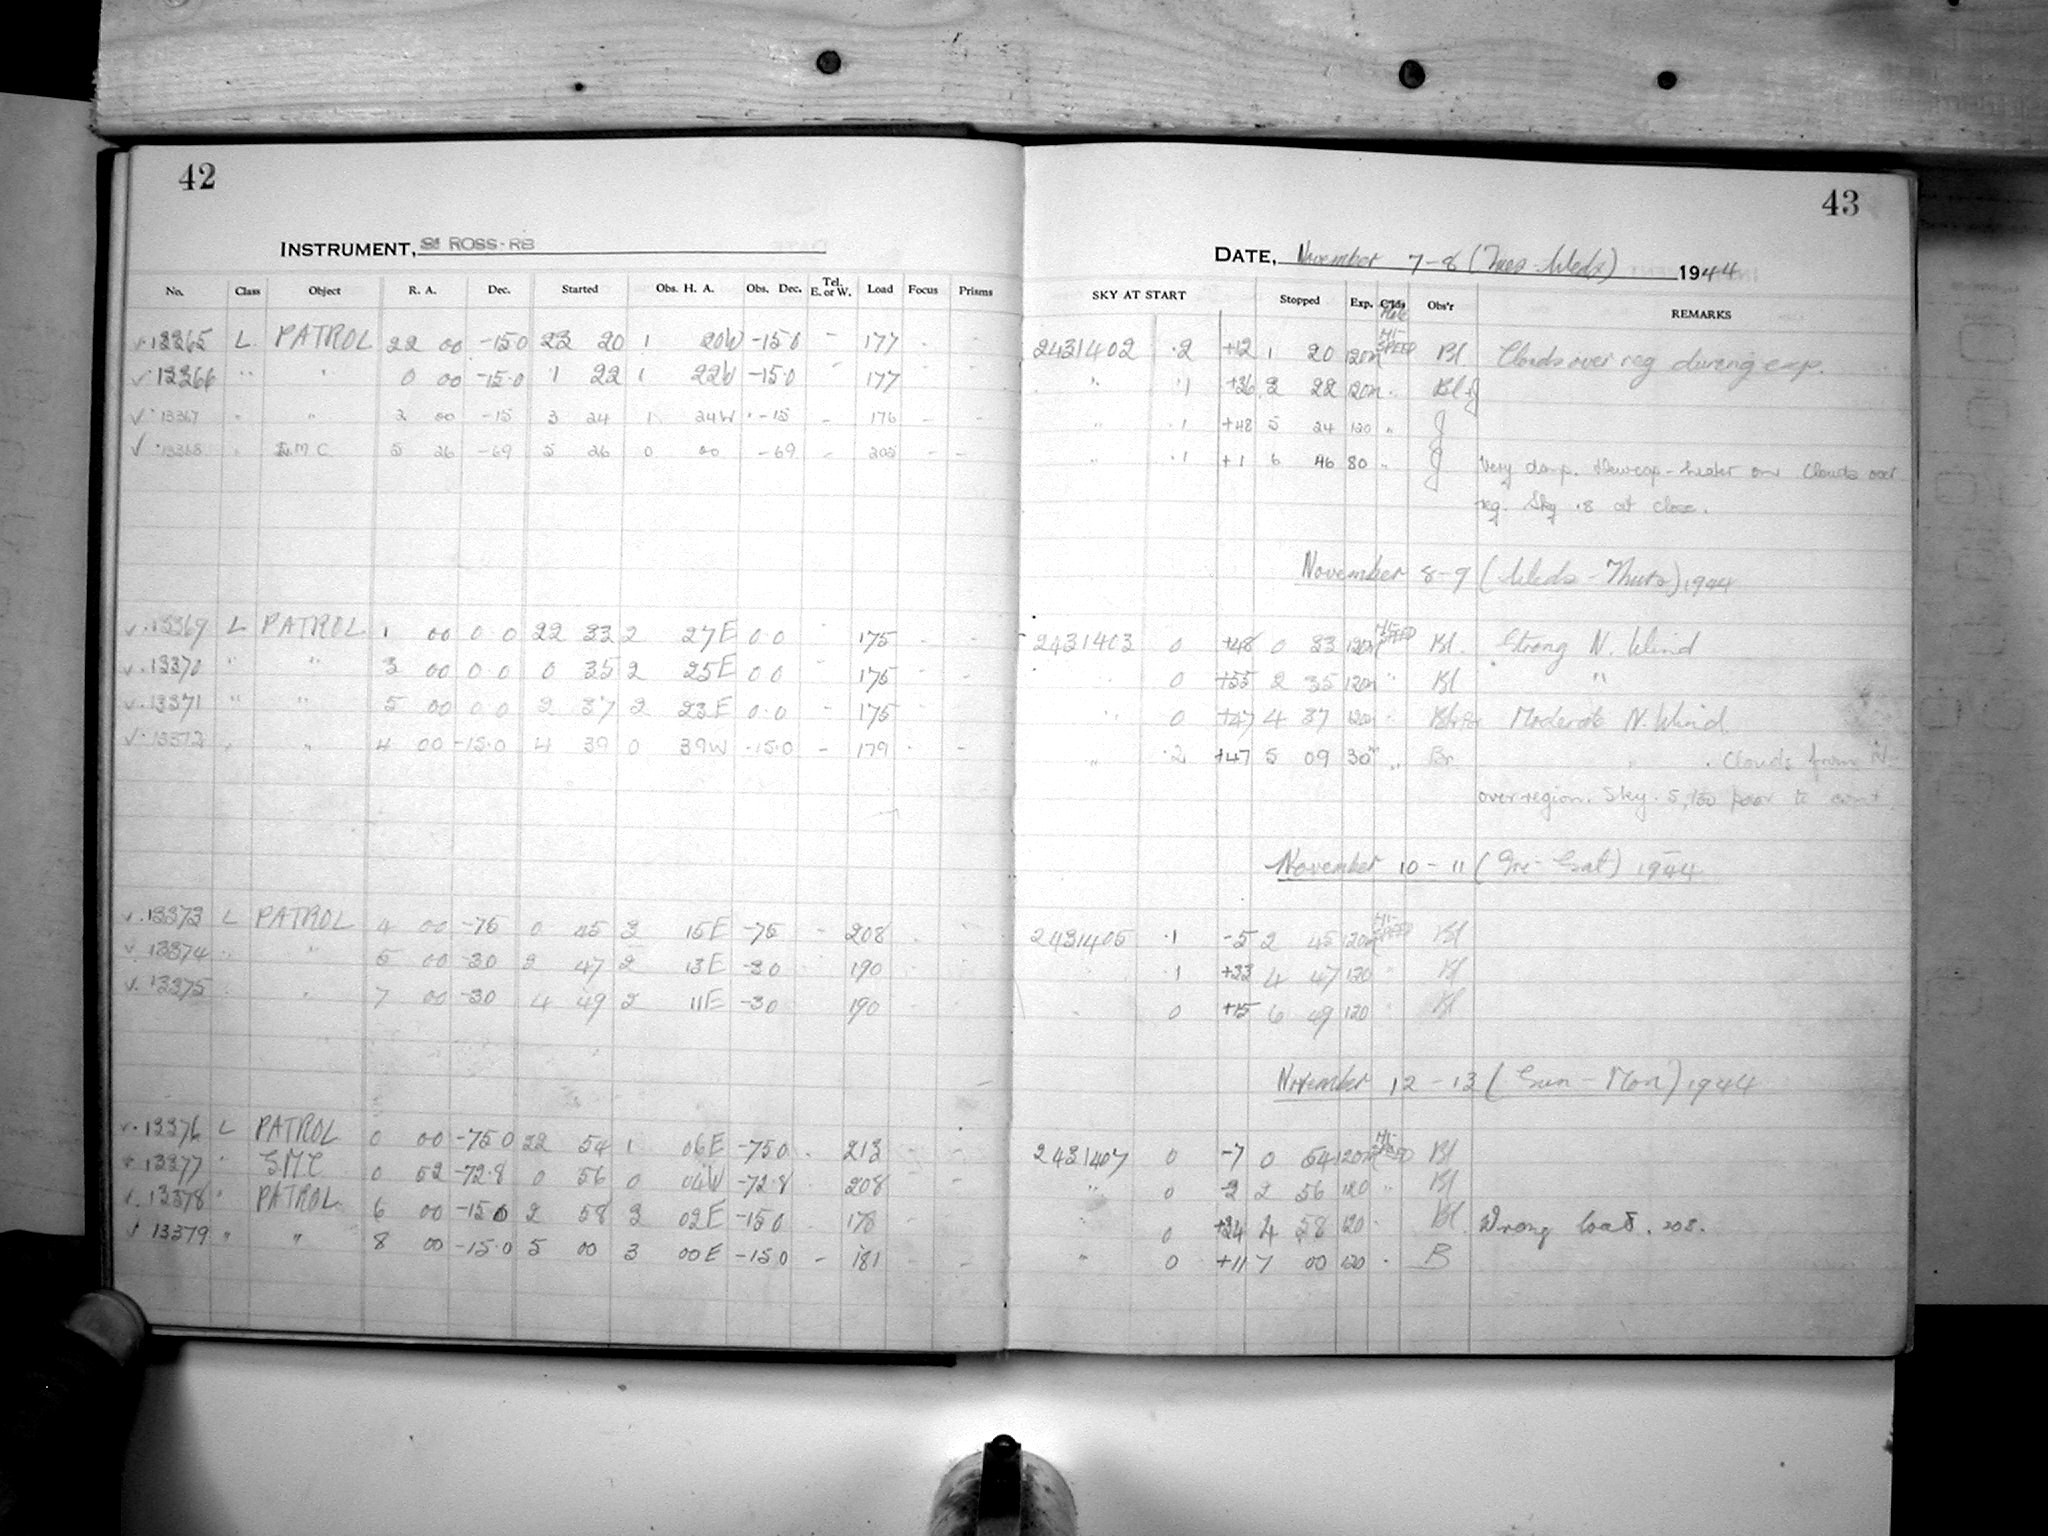 42
INSTRUMENT, ROSS-RB
No. Class Object R. A. Dec. Started Obs. H. A. Obs. Dec. Tel. E. or W. Load Focus Prisms
13365 L PATROL 22 00 -15.0 23 20 1 20W -15.0 - 177
13366 " " 0 00 -15.0 1 22 1 22W -15.0 177
13367 " " 2 00 -15 3 24 1 24W -15 - 176
13368 " L.M.C. 5 26 -69 5 26 0 00 -69 - 205 - -
13369 L PATROL 1 00 0 0 22 33 2 27E 0 0 175
13370 " " 3 00 0 0 0 35 2 25E 0 0 175
13371 " " 5 00 0 0 2 37 2 23E 0.0 175
13372 " " 4 00 -15.0 4 39 0 39W -15.0 - 179 -
13373 L PATROL 4 00 -75 0 45 3 15E -75 208
13374 " " 5 00 -30 2 47 2 13E -30 190
13375 " 7 00 -30 4 49 2 11E -30 190
13376 L PATROL 0 00 -75 0 22 54 1 06E -75 0 213
13377 " SMC 0 52 -72.8 0 56 0 04W -72.8 208
13378 " PATROL 6 00 -15 0 2 58 3 02E -15 0 178
13379 " " 8 00 -15.0 5 00 3 00E -15 0 - 181
43
DATE, November 7-8 (Tues-Weds) 1944
SKY AT START Stopped Exp. Obs'r REMARKS
2431402 .2 +12 1 20 120m HI-SPEED Bl. Clouds over reg during exp.
" .1 +36 3 22 120m " Bl+J
" .1 +48 5 24 120 " J
" .1 +1 6 46 80 " J Very damp. Dewcap-heater on. Clouds over
reg. Sky .8 at close.
November 8-9 (Weds-Thurs) 1944
2431403 0 +48 0 33 120m HI-SPEED Bl. Strong N. Wind
0 +55 2 35 120m " Bl "
" 0 +47 4 37 120m Moderate N. Wind
" .2 +47 5 09 30m " Br " . Clouds from N.
over region. Sky .5, too poor to cont.
November 10-11 (Fri-Sat) 1944
2431405 .1 -5 2 45 120m HI-SPEED Bl
.1 +33 4 47 120 " Bl
0 +15 6 49 120 " Bl
November 12-13 (Sun-Mon) 1944
2431407 0 -7 0 54 120m HI-SPEED Bl
" 0 -2 2 56 120 " Bl
0 +24 4 58 120 Bl Wrong load. 208.
" 0 +11 7 00 120 B